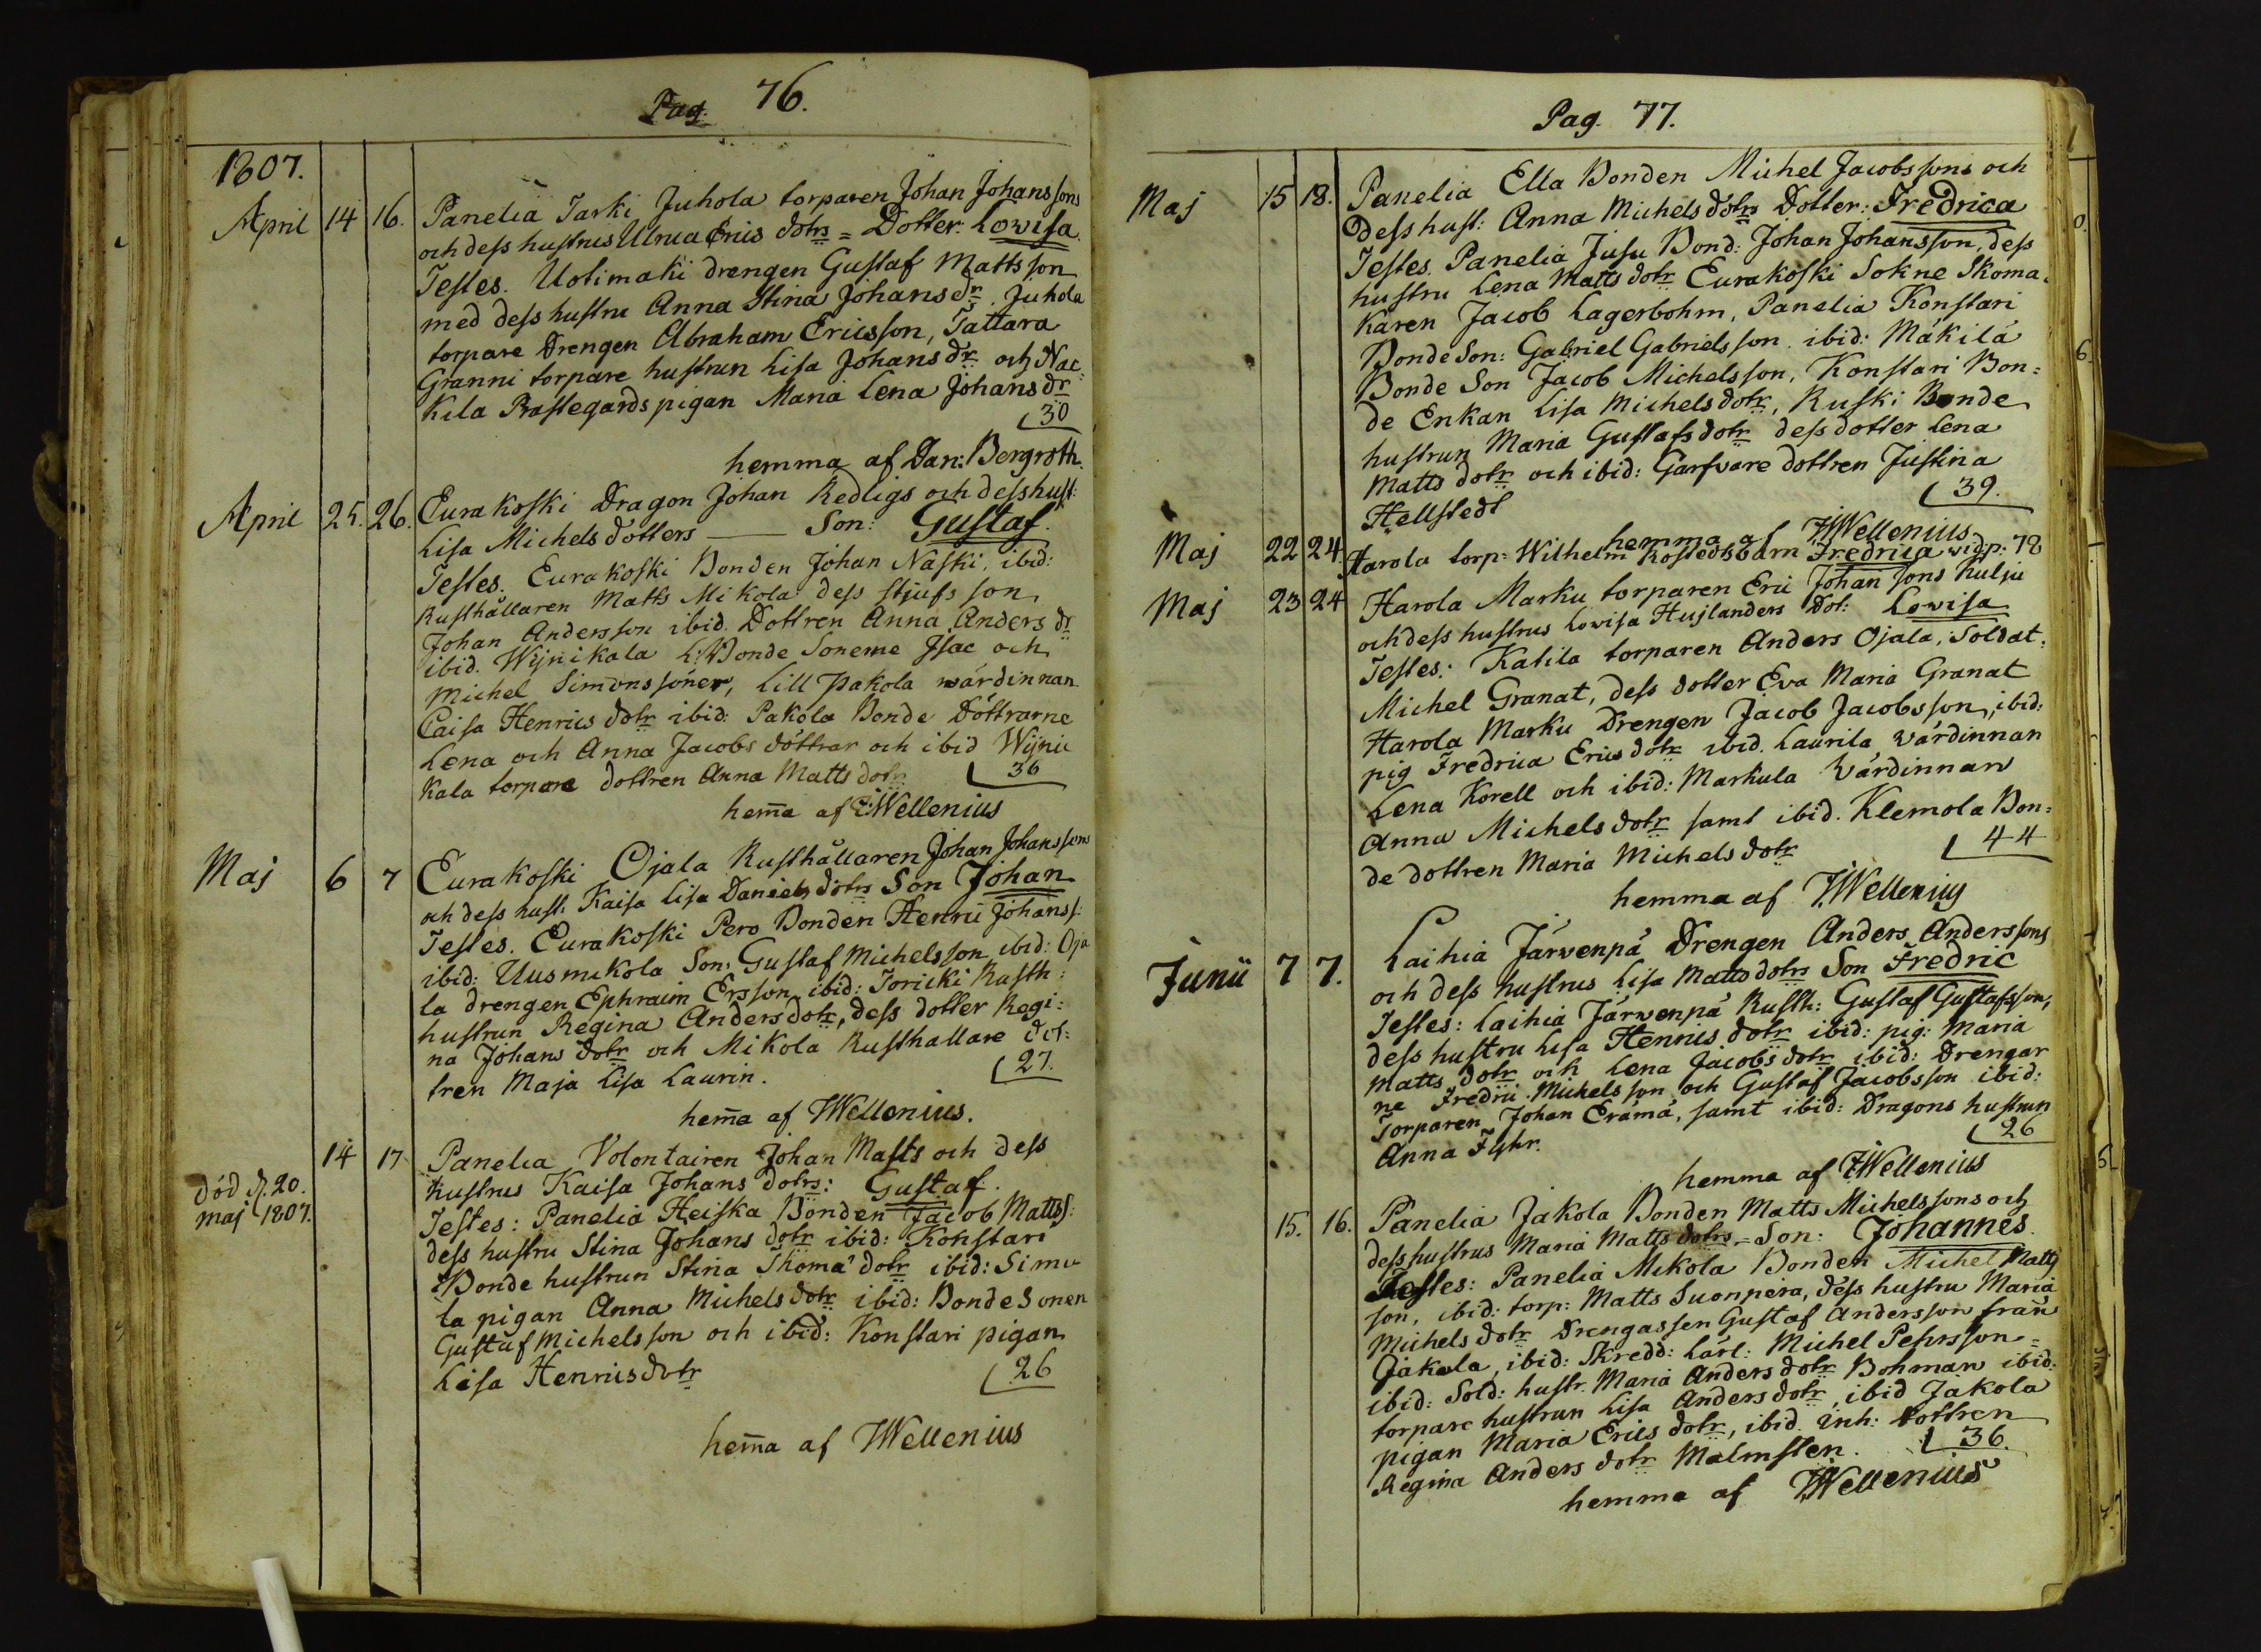 Pag. 76.
1807.
April 14 16. Panelia Tarki Juhola torparen Johan Johanssons
och dess hustrus Ulrica Erics dotrs = Dotter: Lowisa.
Testes. Uotimaki drengen Gustaf Mattsson
med dess hustru Anna Stina Johans dr. Juhola
torpare Drengen Abraham Ericsson, Tattara
Granni torpare hustrun Lisa Johans dr och Nac-
kila Prastegards pigan Maria Lena Johans dr
30
hemma af Dan: Bergroth.
April 25. 26. Eurakoski Dragon Johan Redligs och dess hust:
Lisa Michels dotters — Son: Gustaf.
Testes. Eurakoski Bonden Johan Naski, ibid:
Rusthållaren Matts Mikola dess stjufs son
Johan Andersson ibid. Dottren Anna Anders dr
ibid. Wijnikala L: Bonde Sonerne Isac och
Michel Simonssöner, Lill Pakola wärdinnan
Caisa Henrics dotr ibid: Pakola Bonde Döttrarne
Lena och Anna Jacobs döttrar och ibid Wijni
kala torpare dottren Anna Matts dotr
36
hem̄a af Wellenius
Maj 6 7 Eurakoski Ojala Rusthållaren Johan Johanssons
och dess hust: Kaisa Lisa Daniels dotrs Son Johan
Testes. Eurakoski Pero Bonden Henric Johanss:
ibid: Uusmikola Son: Gustaf Michelsson ibid: Oja
la drengen Ephraim Ersson ibid: Joricki Rusth:
hustrun Regina Anders dotr, dess dotter Regi:
na Johans dotr och Mikola Rusthallare dot:
tren Maja Lisa Laurin. 27.
hem̄a af Wellenius.
14 17 Panelia Volontairen Johan Masts och dess
hustrus Kaisa Johans dotrs: Gustaf.
död d. 20.
maj 1807.
Testes: Panelia Heiska Bonden Jacob Mattss:
dess hustru Stina Johans dotr ibid: Konstari
Bonde hustrun Stina Thoma dotr ibid: Simu
la pigan Anna Michels dotr ibid: Bonde Sonen
Gustaf Michelsson och ibid: Konstari pigan
Lisa Henrics dotr 26
hem̄a af Wellenius
Pag. 77.
Maj 15 18. Panelia Ella Bonden Michel Jacobssons och
dess hust: Anna Michels dotrs Dotter: Fredrica
Testes. Panelia Jusu Bond: Johan Johansson, dess
hustru Lena Matts dotr Eurakoski Sokne Skoma-
karen Jacob Lagerbohm, Panelia Konstari
Bonde Son: Gabriel Gabrielsson. ibid: Mäkilä
Bonde Son Jacob Michelsson, Konstari Bon=
de Enkan Lisa Michels dotr, Ruski Bonde
hustrun Maria Gustafs dotr dess dotter Lena
Matts dotr och ibid: Garfvare dottren Justina
Hellstedt 39.
hemma af Wellenius.
Maj 22 24. Harola torp: Wilhelm Rostedts barn Fredrica vid p: 78
Maj 23 24 Harola Marku torparen Eric Johanssons Kulju
och dess hustrus Lowisa Hujlanders Dot: Lowisa
Testes: Katila torparen Anders Ojala, Soldat:
Michel Granat, dess dotter Eva Maria Granat
Harola Marku Drengen Jacob Jacobsson, ibid:
pig Fredrica Erics dotr ibid. Laurila wärdinnan
Lena Korell och ibid: Markula Wärdinnan
Anna Michels dotr samt ibid. Klemola Bon=
de dottren Maria Michels dotr 44
hemma af Wellenius
Junii 7 7. Laihia Järwenpä Drengen Anders Anderssons
och dess hustrus Lisa Matts dotrs Son Fredric
Testes: Laihia Järwenpä Rusth: Gustaf Gustafsson,
dess hustru Lisa Henrics dotr ibid: pig: Maria
Matts dotr och Lena Jacobs dotr ibid: Drengar
ne Fredric Michelsson och Gustaf Jacobsson ibid:
Torparen Johan Erämä, samt ibid: Dragons hustrun
Anna Fyhr. 26
hemma af Wellenius
15. 16. Panelia Jakola Bonden Matts Michelssons och
dess hustrus Maria Matts dotrs = Son: Johannes.
Testes: Panelia Mikola Bonden Michel Matts
son, ibid: torp: Matts Suonpera, dess hustru Maria
Michels dotr Drengassen Gustaf Andersson från
Jakola, ibid: Skredd: Lärl: Michel Pehrsson=
ibid: Sold: hustr. Maria Anders dotr Bohman ibid:
torpare hustrun Lisa Anders dotr, ibid Jakola
pigan Maria Erics dotr, ibid. inh: dottren
Regina Anders dotr Malmsten. 36.
hemma af Wellenius